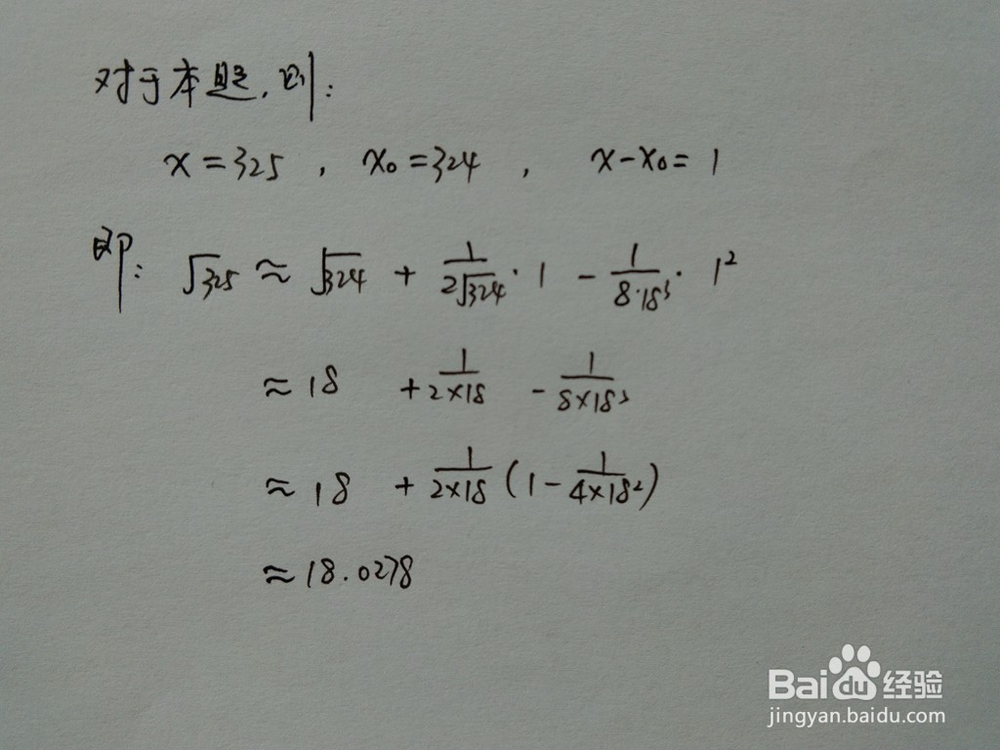 对于本题，则：
x=325 , x₀=324 , x-x₀=1
即：√325 ≈ √324 + 1/(2√324)·1 - 1/(8·18³)·1²
≈18 + 1/(2×18) - 1/(8×18³)
≈18 + 1/(2×18) (1 - 1/(4×18²))
≈18.0278
Baidu经验
jingyan.baidu.com